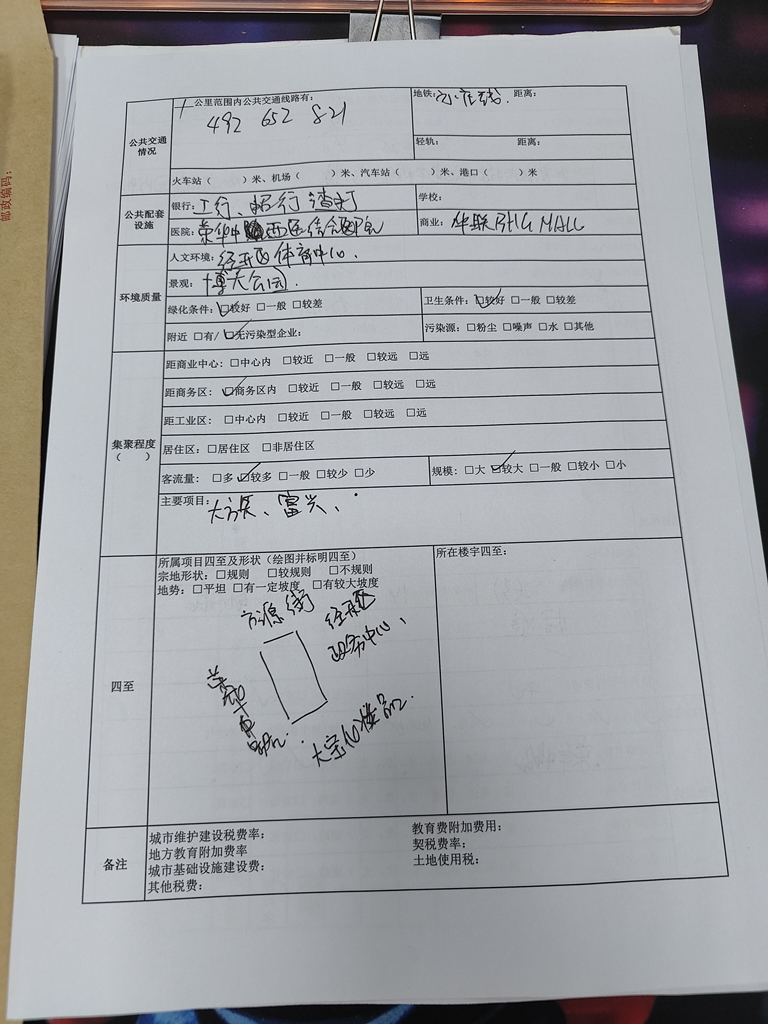 邮政编码:
公共交通情况
公里范围内公共交通线路有:
492 652 821
地铁: 亦庄线. 距离:
轻轨: 距离:
火车站( )米、机场( )米、汽车站( )米、港口( )米
公共配套设施
银行: 工行、招行 渣打
学校:
医院: 荣华中西医结合医院
商业: 华联BHG MALL
环境质量
人文环境: 经开区体育中心.
景观: 博大公园.
绿化条件: ☑较好 □一般 □较差
卫生条件: ☑较好 □一般 □较差
附近 □有/☑无污染型企业:
污染源: □粉尘 □噪声 □水 □其他
集聚程度
( )
距商业中心: □中心内 □较近 □一般 □较远 □远
距商务区: ☑商务区内 □较近 □一般 □较远 □远
距工业区: □中心内 □较近 □一般 □较远 □远
居住区: □居住区 □非居住区
客流量: □多 ☑较多 □一般 □较少 □少
规模: □大 ☑较大 □一般 □较小 □小
主要项目:
大族、富兴、
四至
所属项目四至及形状(绘图并标明四至)
宗地形状: □规则 □较规则 □不规则
地势: □平坦 □有一定坡度 □有较大坡度
所在楼宇四至:
方源街
经开区
政务中心、
荣华中路
备注
城市维护建设税费率:
教育费附加费用:
地方教育附加费率
契税费率:
城市基础设施建设费:
土地使用税:
其他税费: